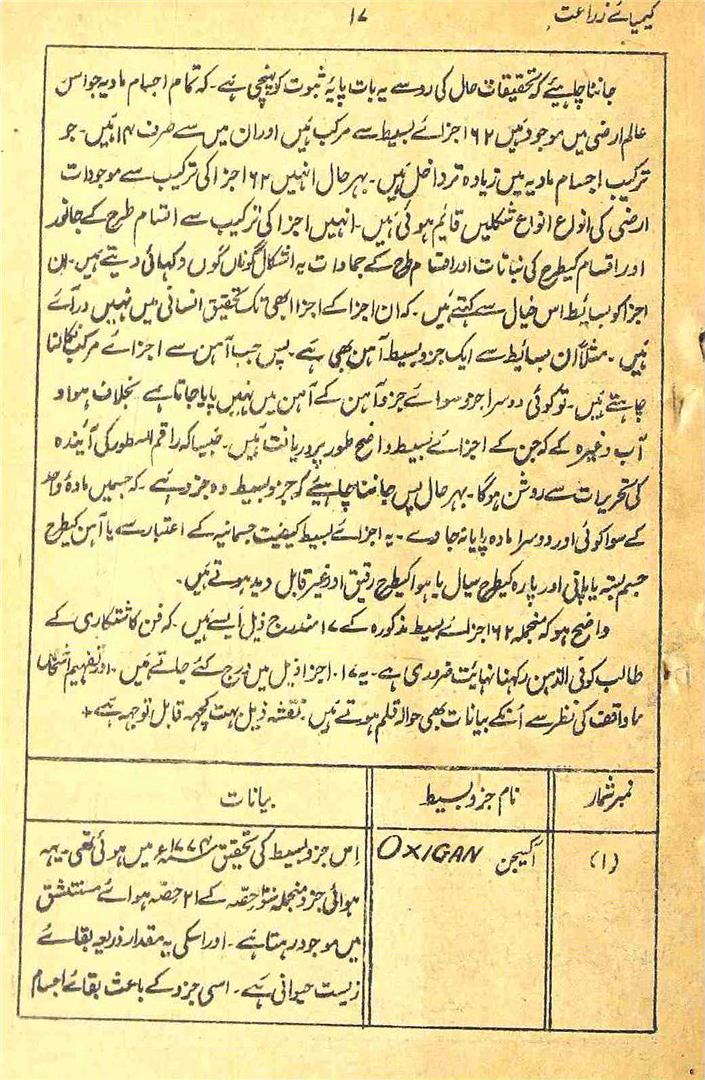 کیمیائے زراعت
۱۷
جاننا چاہیئے کہ تحقیقات حال کی رو سے یہ بات پایۂ ثبوت کو پہنچی ہے۔ کہ تمام اجسام مادیہ جو اس
عالم ارضی میں موجود ہیں ۶۲ اجزائے بسیط سے مرکب ہیں اور ان میں سے صرف ۱۴ ہیں۔ جو
ترکیب اجسام مادیہ میں زیادہ تر داخل ہیں۔ بہرحال انہیں ۶۲ اجزا کی ترکیب سے موجودات
ارضی کی انواع انواع شکلیں قایم ہوئی ہیں۔ انہیں اجزا کی ترکیب سے اقسام طرح کے جانور
اور اقسام کیطرح کی نباتات اور اقسام طرح کے جمادات بہ اشکال گوناں گوں دکہائی دیتے ہیں۔ ان
اجزا کو بسائیط اس خیال سے کہتے ہیں۔ کہ ان اجزا کے اجزا ابھی تک تحقیق انسانی میں نہیں در آئے
ہیں۔ مثلاً ان بسائیط سے ایک جزو بسیط آہن بھی ہے۔ پس جب آہن سے اجزائے مرکب نکالنا
چاہتے ہیں۔ تو کوئی دوسرا جزو سوائے جزو آہن کے آہن میں نہیں پایا جاتا ہے بخلاف ہوا و
آب وغیرہ کے کہ جن کے اجزائے بسیط واضح طور پر دریافت ہیں۔ جیسا کہ راقم السطور کی آئیندہ
کی تحریرات سے روشن ہوگا۔ بہرحال پس جاننا چاہیئے کہ جزو بسیط وہ جزو ہے۔ کہ جسمیں مادۂ واحد
کے سوا کوئی اور دوسرا مادہ پایا نہ جاوے۔ یہ اجزائے بسیط کیفیت جسمانیہ کے اعتبار سے یا آہن کیطرح
جسم بستہ یا پانی اور پارہ کیطرح سیال یا ہوا کیطرح رقیق اور غیر قابل دید ہوتے ہیں۔
واضح ہو کہ منجملہ ۶۲ اجزائے بسیط مذکورہ کے ۱۷ مندرج ذیل ایسے ہیں۔ کہ فن کاشتکاری کے
طالب کو فی الذہن رکہنا نہایت ضروری ہے۔ یہ ۱۷ اجزا ذیل میں درج کئے جاتے ہیں۔ اور تفہیم اشخاص
نا واقف کی نظر سے اُنکے بیانات بھی حوالہ قلم ہوتے ہیں۔ نقشہ ذیل بہت کچہہ قابل توجہہ ہے +
نمبر شمار نام جزو بسیط بیانات
(۱) آکیجن OXIGAN اِس جزو بسیط کی تحقیق ۱۷۷۴ء میں ہوئی تھی۔ یہہ
ہوائی جزو منجملہ سو حصّہ کے ۲۱ حصّہ ہوائے مستنشق
میں موجود رہتا ہے۔ اور اسکی یہ مقدار ذریعہ بقائے
زیست حیوانی ہے۔ اسی جزو کے باعث بقائے اجسام